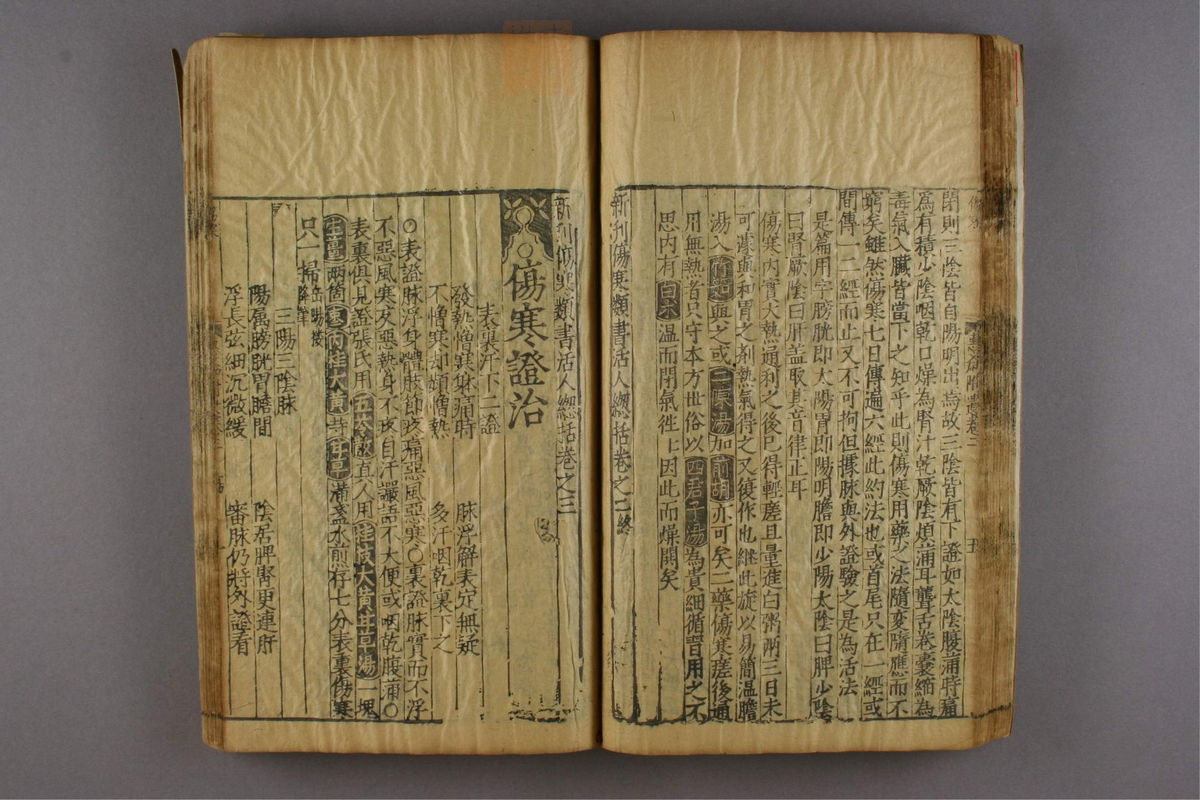 閉則三陰皆自陽明出焉故三陰皆有下證如太陰腹滿時痛
為有積少陰咽乾口燥為腎汁乾厥陰煩滿耳聾舌卷囊縮為
毒氣入臟皆當下之知乎此則傷寒用藥之法隨變隨應而不
窮矣雖然傷寒七日傳遍六經此約法也或首尾只在一經或
間傳一二經而止又不可拘但據脉與外證驗之是為活法
是篇用字膀胱即太陽胃即陽明膽即少陽太陰曰脾少陰
曰腎厥陰曰肝蓋取其音律正耳
傷寒內實大熱通利之後已得輕瘥且量進白粥兩三日未
可遽與和胃之劑熱氣得之又復作也継此旋以易簡溫膽
湯入竹茹與之或二陳湯加前胡亦可矣二藥傷寒瘥後通
用無熱者只守本方世俗以四君子湯為貴細循習用之不
思內有白朮溫而閉氣徃上因此而燥悶矣
新刊傷寒類書活人總括卷之二終
新刊傷寒類書活人總括卷之三
傷寒證治
表裏汗下二證
發熱憎寒身痛時 脉浮解表定無疑
不憎寒却煩憎熱 多汗咽乾裏下之
○表證脉浮身體肢節疼痛惡風惡寒○裏證脉實而不浮
不惡風寒反惡熱身不疼自汗讝語不大便或咽乾腹滿○
表裏俱見證張氏用五苓散直人用桂枝大黃甘草湯一塊
生薑兩箇棗肉桂大黃并甘草滿盞水煎存七分表裏傷寒
只一掃
三陽三陰脉
陽属膀胱胃膽間 陰居脾腎更連肝
浮長弦細沉微緩 審脉仍將外證看